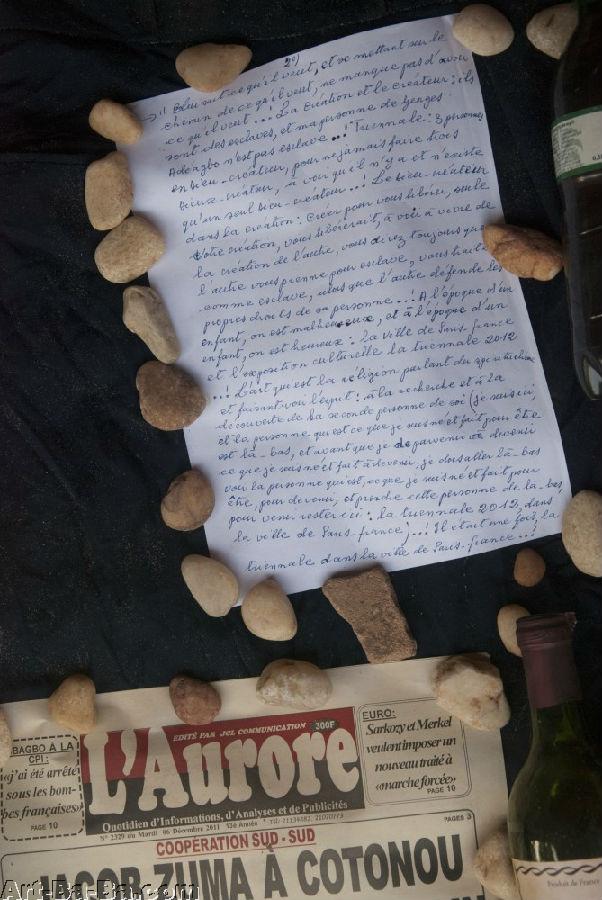 2°)
celui sait ce qu'il veut, et se mettant sur le
chemin de ce qu'il veut, ne manque pas d'avoir
ce qu'il veut... La création et le créateur ; ils
sont des esclaves, et ma personne de Georges
Adéagbo n'est pas esclave ..! Triennale : 3 personnes
en bien-créateur, pour ne jamais faire trois
bien-créateur, à voir qu'il n'y a et n'existe
qu'un seul bien-créateur...! Le bien-créateur
dans la création : créer pour vous libérer, où le
votre création, vous libérerait, à voir à vivre de
la création de l'autre, vous direz toujours que
l'autre vous prenne pour esclave, vous traite
comme esclave, alors que l'autre défende les
propres droits de sa personne...! A l'époque d'un
enfant, on est malheureux, et à l'époque d'un
enfant, on est heureux : la ville de Paris-france
et l'exposition culturelle la triennale 2012
..! L'art qui est la religion parlant du
et faisant voir l'esprit : à la recherche et à la
découverte de la seconde personne de soi (je suis ici
et la personne qui est ce que je suis né et fait pour être
est là-bas, et avant que je de parvenir à devenir
ce que je suis né et fait à devenir, je dois aller là-bas
voir la personne qui est, ce que je suis né et fait pour
être, pour devenir, et prendre cette personne de là-bas
pour venir rester ici : la triennale 2012, dans
la ville de Paris-france)...! Il était une fois, la
triennale dans la ville de Paris-france...!
GBAGBO À LA
CPI :
«j'ai été arrêté
sous les bom-
bes françaises»
PAGE 10
EDITÉ PAR JCL COMMUNICATION
300F
L'Aurore
Quotidien d'Informations, d'Analyses et de Publicités
N° 2329 du Mardi 06 Décembre 2011
EURO:
Sarkozy et Merkel
veulent imposer un
nouveau traité à
«marche forcée»
PAGE 10
COOPERATION SUD - SUD
PAGE 3
JACOB ZUMA À COTONOU
Produit de France
Art-Ba-Ba.com